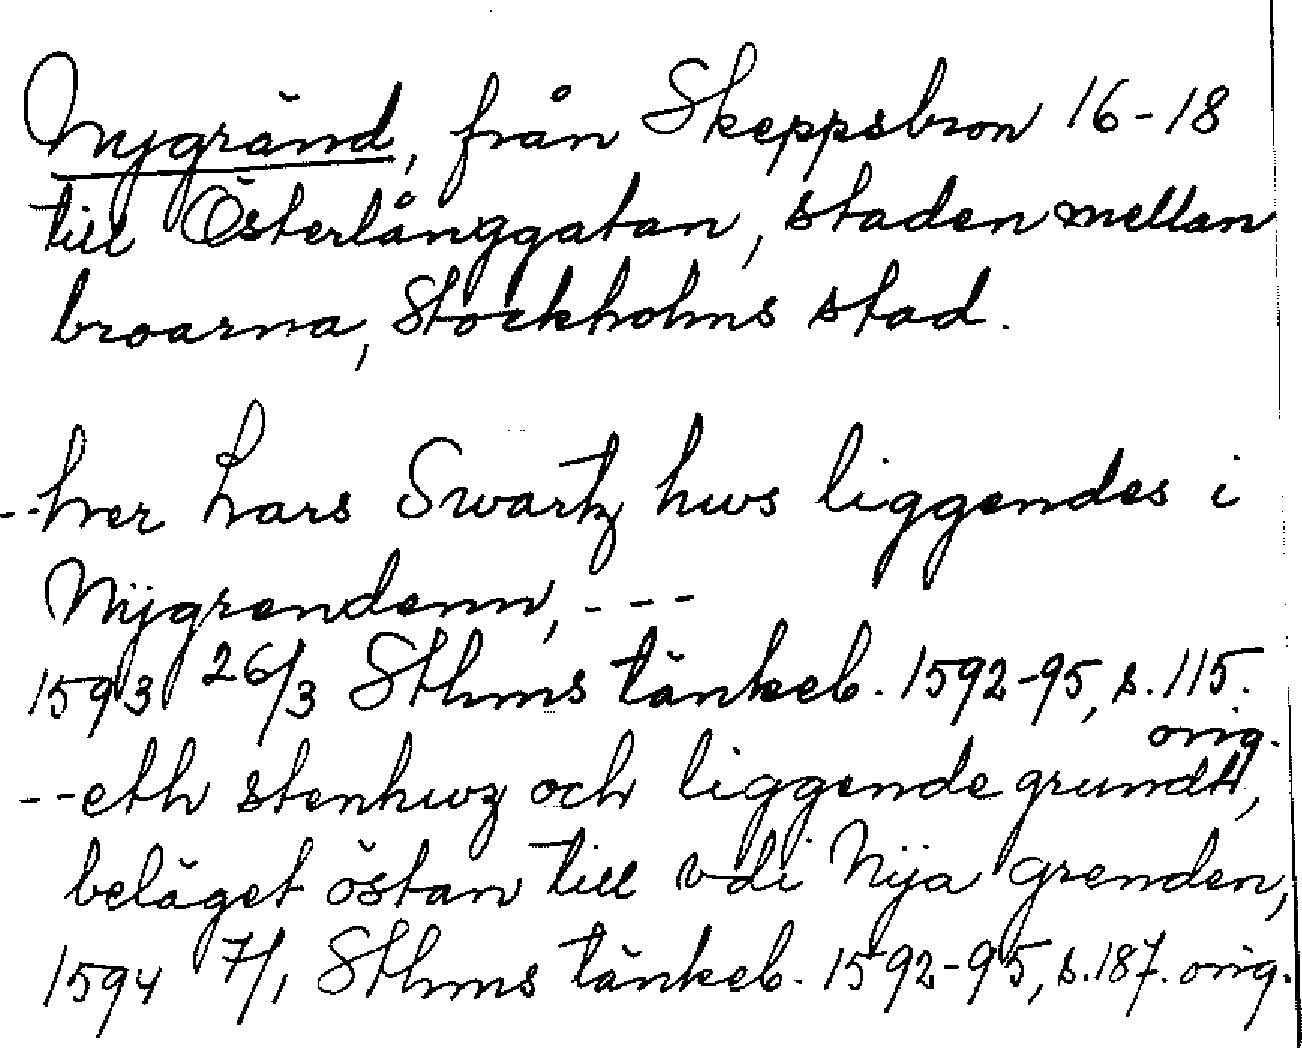 Nygränd, från Skeppsbron 16-18
till Österlånggatan, staden mellan
broarna, Stockholms stad.
--her Lars Swartz hws liggendes i
Nÿgrendenn, ---
1593 26/3 Sthms tänkeb. 1592-95, s. 115.
orig.
--eth stenhwz och liggende grundt,
beläget östan till vdi Nÿa grenden,
1594 7/1, Sthms tänkeb. 1592-95, s. 187. orig.